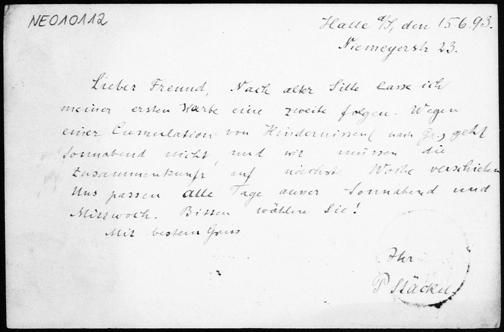 NE010112
Halle a/S, den 15.6.93.
Niemeyerstr 23.
Lieber Freund, Nach alter Sitte lasse ich
meiner ersten Karte eine zweite folgen. Wegen
einer Cumulation von Hindernissen geht
Sonnabend nicht, und wir müssen die
Zusammenkunft auf nächste Woche verschieben
Uns passen alle Tage ausser Sonnabend und
Mittwoch. Bitten wählen Sie!
Mit bestem Gruss
Ihr
P Stäckel